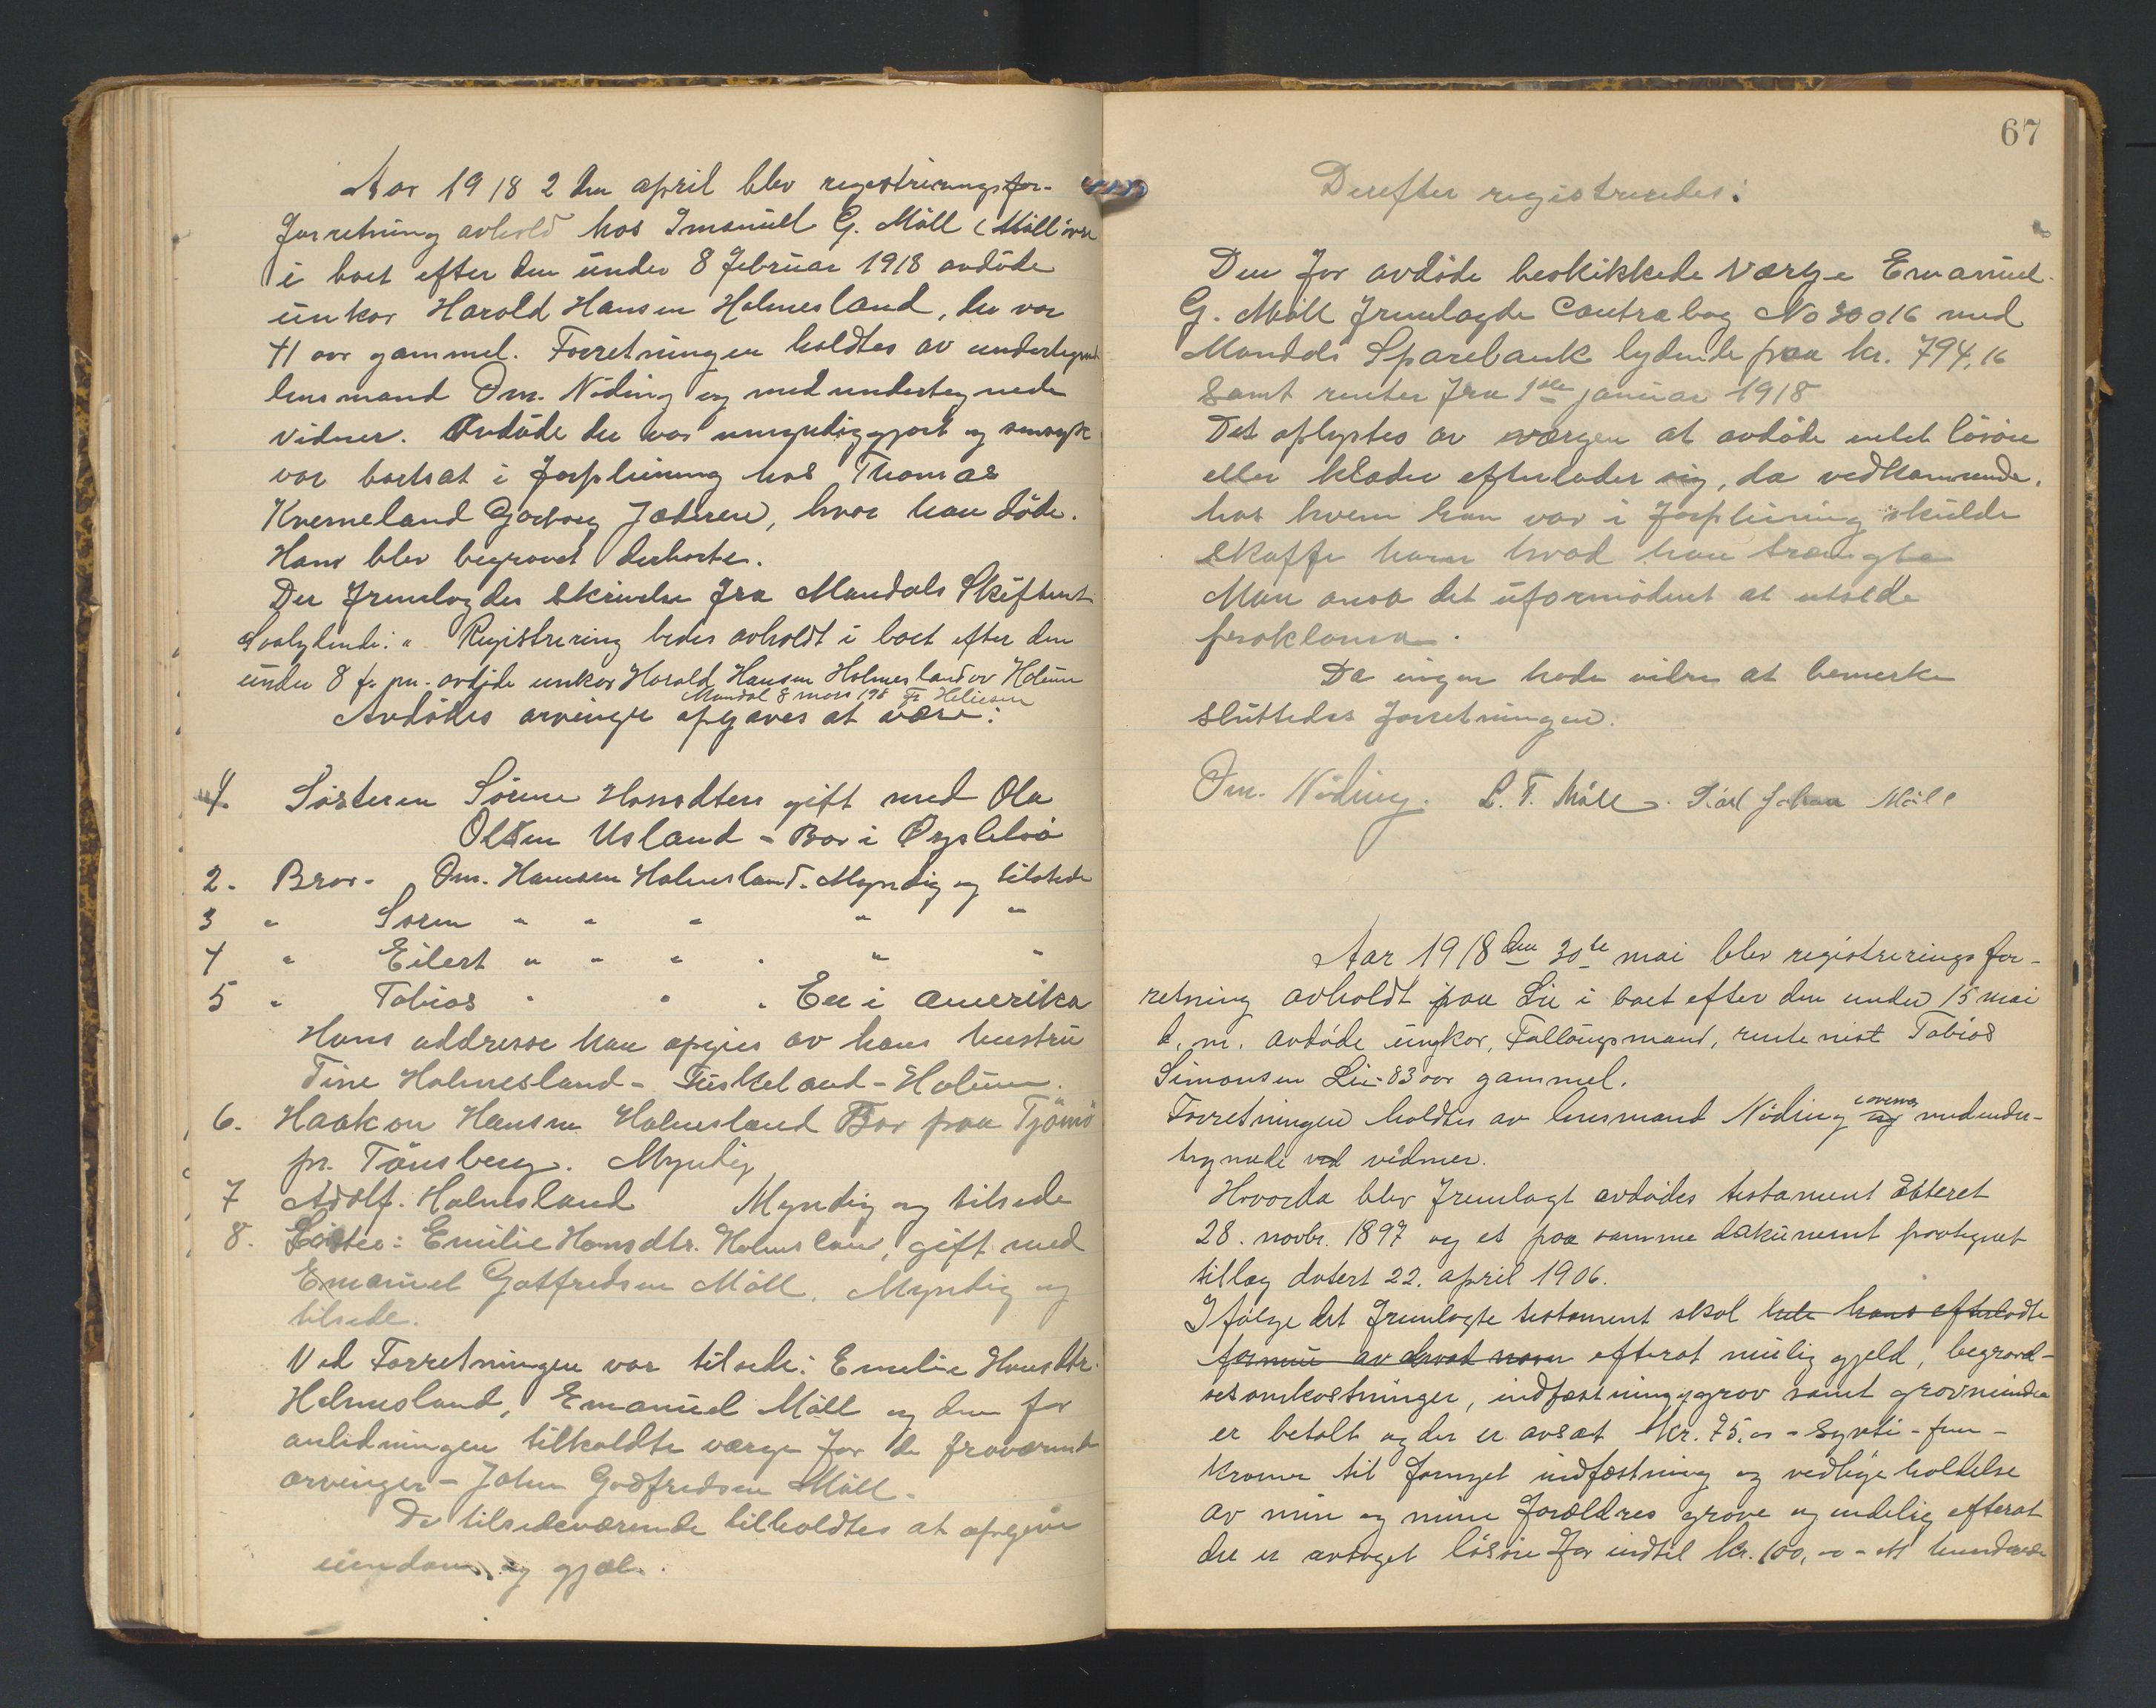 Aar 1918 2 den april blev registreringsfor-
forretning avhold hos Imanuel G. Möll (Möll övre
i boet efter den under 8 februar 1918 avdöde
unkar Harald Hansen Holmesland, der var
41 aar gammel. Forretningen holdtes av undertegned
lensmand Om. Nöding og medundertegnede
vidner. Avdöde der var umyndiggjort og sinnsyk
var bortsat i forpleining hos Thomas
Kverneland Gjorborg Jæderen, hvor han döde.
Hans blev begravet derborte.
Der fremlagdes skrivelse fra Mandals Skifteret
saalydende: "Registrering bedes avholdt i boet efter den
under 8 f. m. avdöde unkar Harald Hansen Holmesland av Holum
Mandal 8 mars 198 Fr Heliesen
Avdödes arvinger opgaves at være:
1. Søsteren Sörine Hansdtter gift med Ola
Olsen Usland - Bor i Øyslebö
2. Bror - Om. Hansen Holmesland. Myndig og tilstede
3 " Sören " " " " "
4 " Eilert " " " . " "
5 " Tobias " " . Er i Amerika
Hans addresse kan opgies av hans hustru
Tine Holmesland - Fuskeland - Holum.
6. Haakon Hansen Holmesland Bor paa Tjömö
pr. Tönsberg. Myndig
7 Adolf. Holmesland Myndig og tilsede
8. Söster: Emilie Hansdtr. Holmeslan, gift med
Emanuel Gotfredsen Möll. Myndig og
tilsede.
Ved Forretningen var tilsede: Emilie Hansdtr.
Holmesland, Emanuel Möll og den for
anledningen tilkaldte værge for de fraværende
arvinger - Johan Godfredsen Möll.
De tilsedeværende tilholdtes at opgive
eiendom og gjæl.
67
Derefter registreredes:
Den for avdöde beskikkede værge Emanuel
G. Möll fremlagde Contrabog No 30016 med
Mandals Sparebank lydende paa kr. 794,16
samt renter fra 1ste januar 1918
Det oplystes av værgen at avdöde intet lösöre
eller klæder efterlader sig, da vedkommende,
hos hvem han var i forpleining skulde
skaffe ham hvad han trængte
Man ansa det uformödent at utstede
proklama.
Da ingen hade videre at bemerke
sluttedes forretningen.
Om. Nöding. L. T. Möll. Karl Johan Möll
Aar 1918 den 30te mai blev registreringsfor-
retning avholdt paa Lie i boet efter den under 15 mai
d. m. avdöde ungkar, Fallöugsmand, rentenist Tobias
Simonsen Lie - 83 aar gammel.
Forretningen holdtes av lensmand Nöding og medunder-
tegnede ved vidner.
Hvorda blev fremlagt avdödes testament datteret
28. novbr. 1897 og et paa samme dokument paategnet
tillæg datert 22. april 1906.
Ifölge det fremlagte testament skal hele hans efterladte
formue av hvad navn efterat mulig gjeld, begravel-
sesomkostninger, indfæstning av grav samt gravminder
er betalt og der er avsat kr. 75.00 - Sytti - fem -
kroner til fornyet indfæstning og vedlige holdelse
av min og mine forældres grave og endelig efterat
der er avtaget lösöre for indtil kr. 100,00 - et hundrede